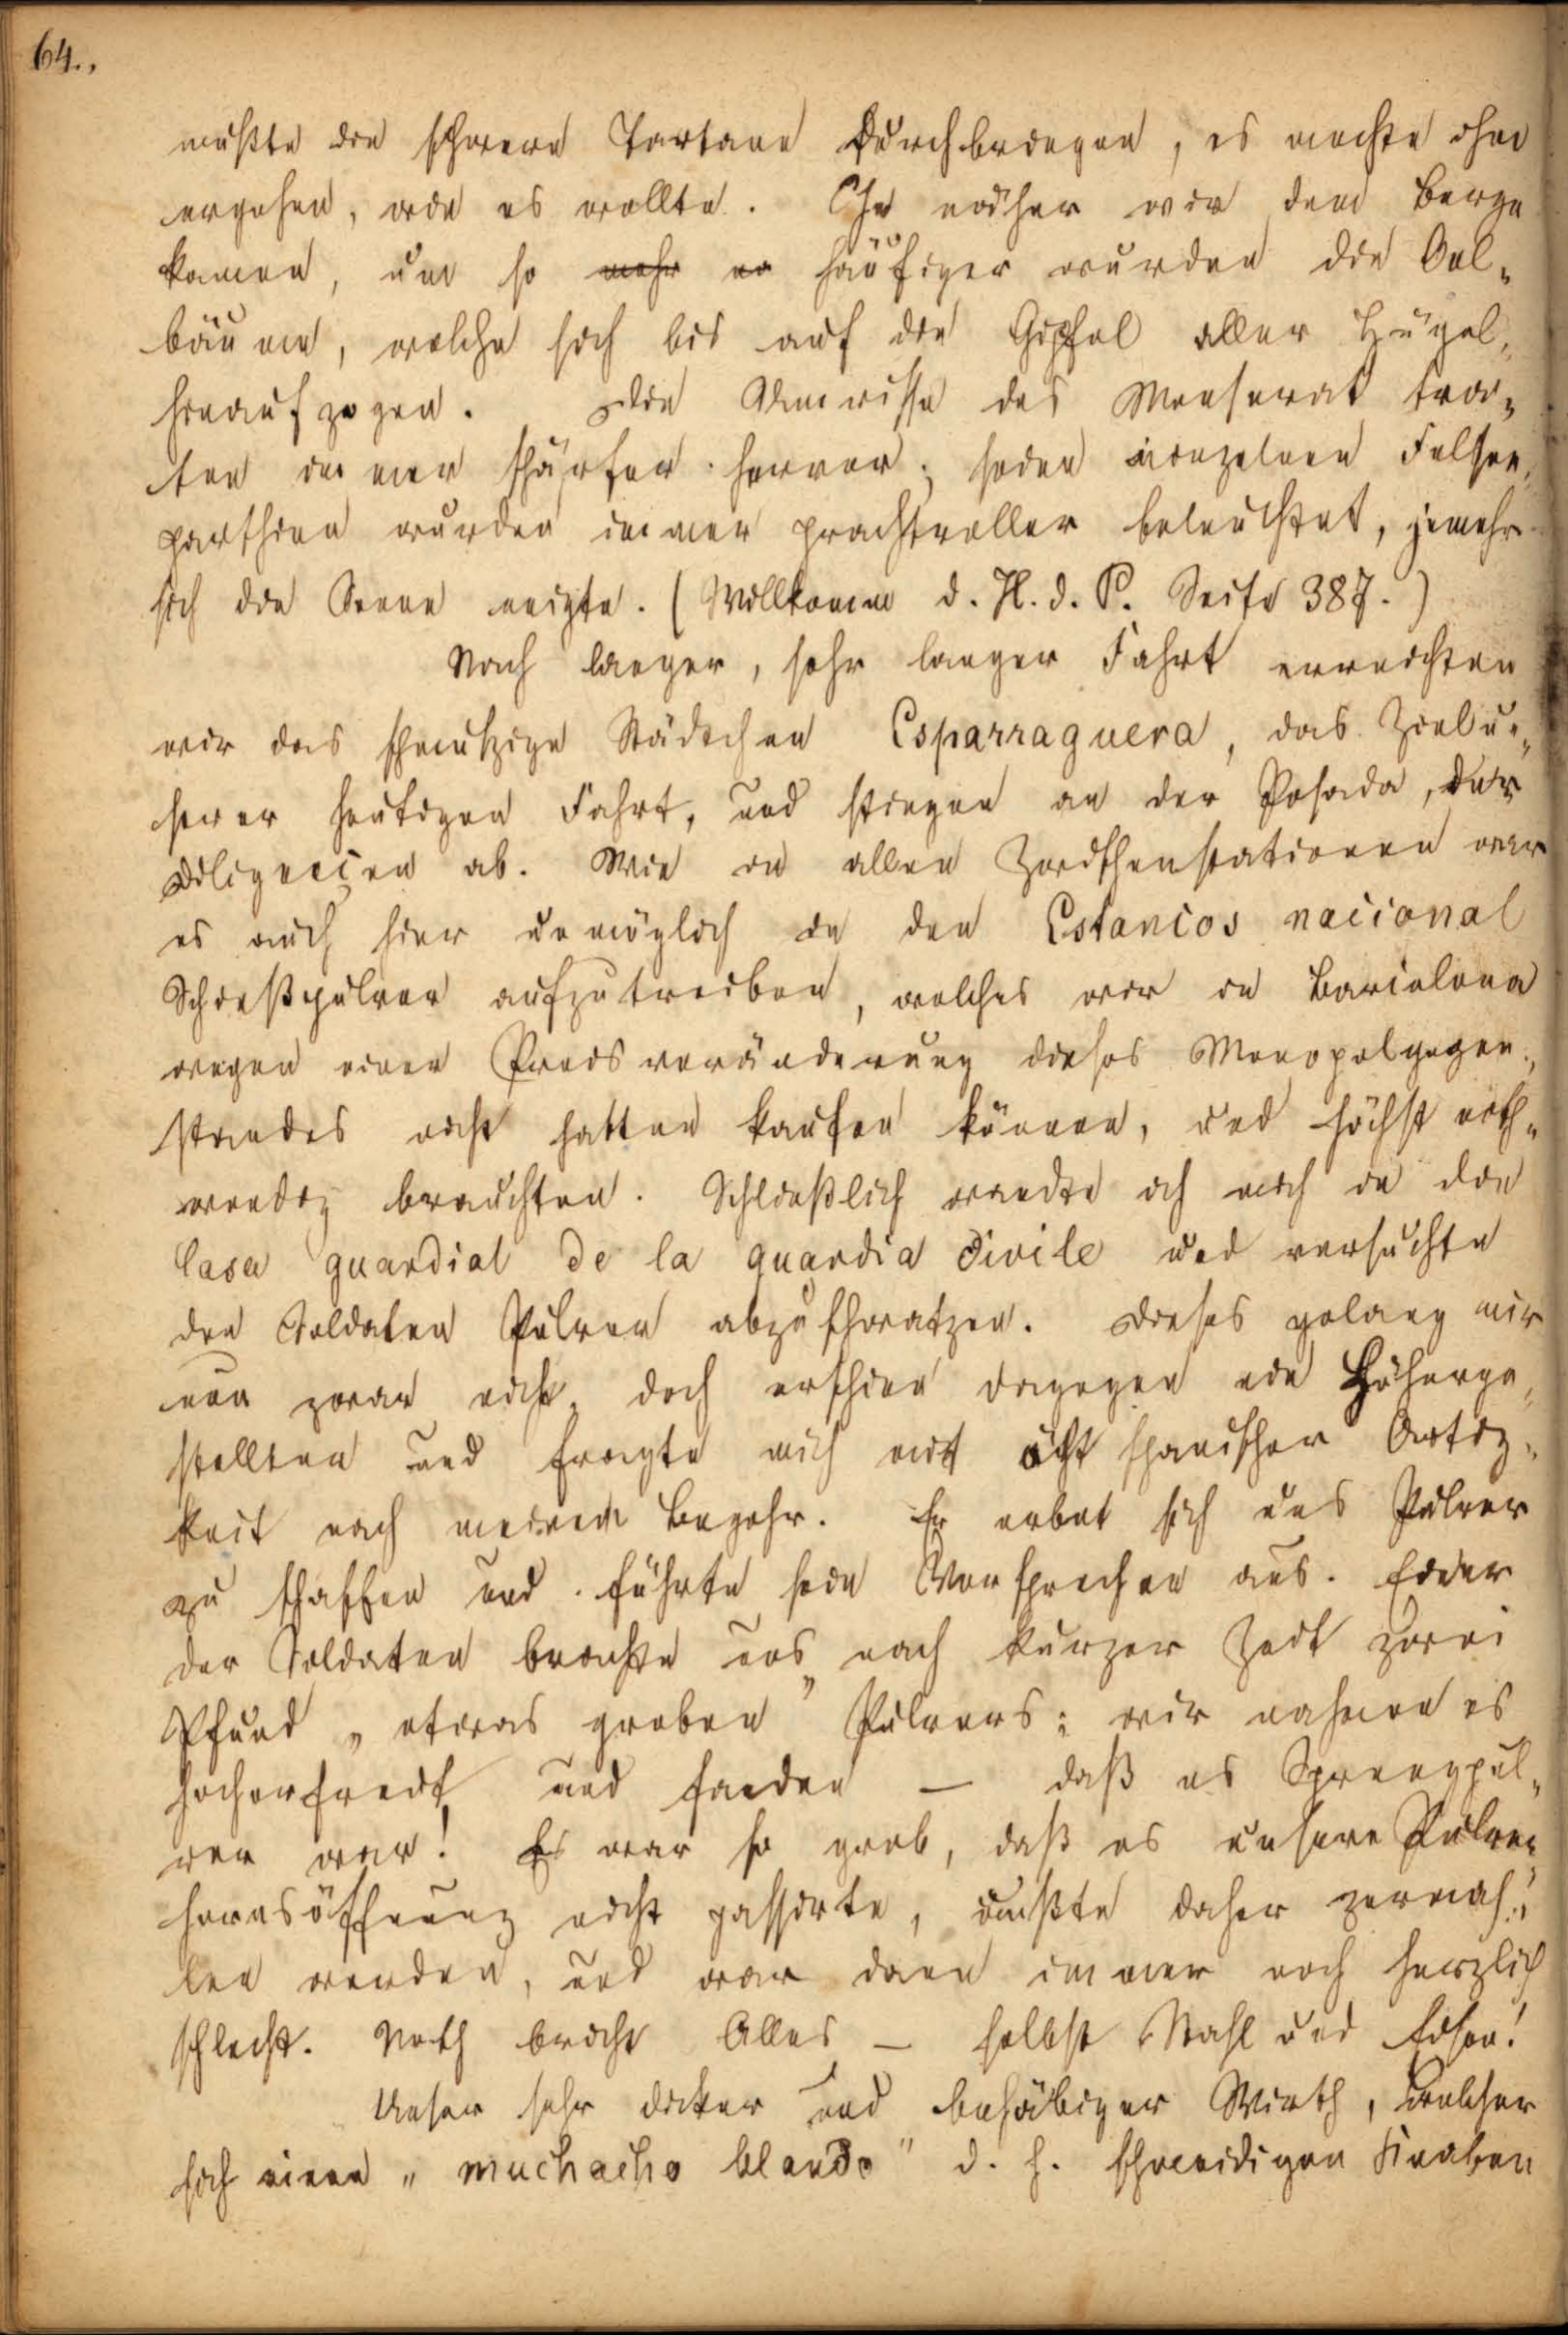 64.,
mußte die schwere Tartane durchbringen, es mochte ihm
ergehen, wie es wollte. Je näher wir dem Berge
kamen, um so mehr er häufiger wurden die Oel-
bäume, welche sich bis auf die Gipfel aller Hügel
hinaufzogen. Die Umrisse des Monserat tra-
ten immer schärfer hervor; seine einzelnen Felsen-
parthien wurden immer prachtvoller beleuchtet, jemehr
sich die Sonne neigte. (Willkomm d. H. d. P. Seite 387.)
Nach langer, sehr langer Fahrt erreichten
wir das schmutzige Städtchen Esparraguera, das Ziel un-
serer heutigen Fahrt, und stiegen an der Posada, der
Diligencien ab. Wie in allen Zwischenstationen war
es auch hier unmöglich in den Estancos nacional
Schießpulver aufzutreiben, welches wir in Barcelona
wegen einer Preisveränderung dieses Monopolgegen-
standes nicht hatten kaufen können, und höchst noth-
wendig brauchten. Schließlich wandte ich mich in die
Casa guardial de la guardia civile und versuchte
den Soldaten Pulver abzuschwatzen. Dieses gelang mir
nun zwar nicht, doch erschien dagegen ein Höherge-
stellter und fragte mich mit ächt spanischer Artig-
keit nach meinem Begehr. Er erbot sich uns Pulver
zu schaffen und führte sein Versprechen aus. Einer
der Soldaten brachte uns nach kurzer Zeit zwei
Pfund „etwas groben" Pulvers; wir nahmen es
hocherfreut und fanden — daß es Sprengpul-
ver war! Es war so grob, daß es unsere Pulver-
hornsöffnung nicht passirte, mußte daher zermah-
len werden, und war dann immer noch herzlich
schlecht. Noth bricht Alles — selbst Stahl und Eisen!
Unser sehr dicker und behäbiger Wirth, welcher
sich einen „muchacho blando" d. h. schmeidigen Knaben